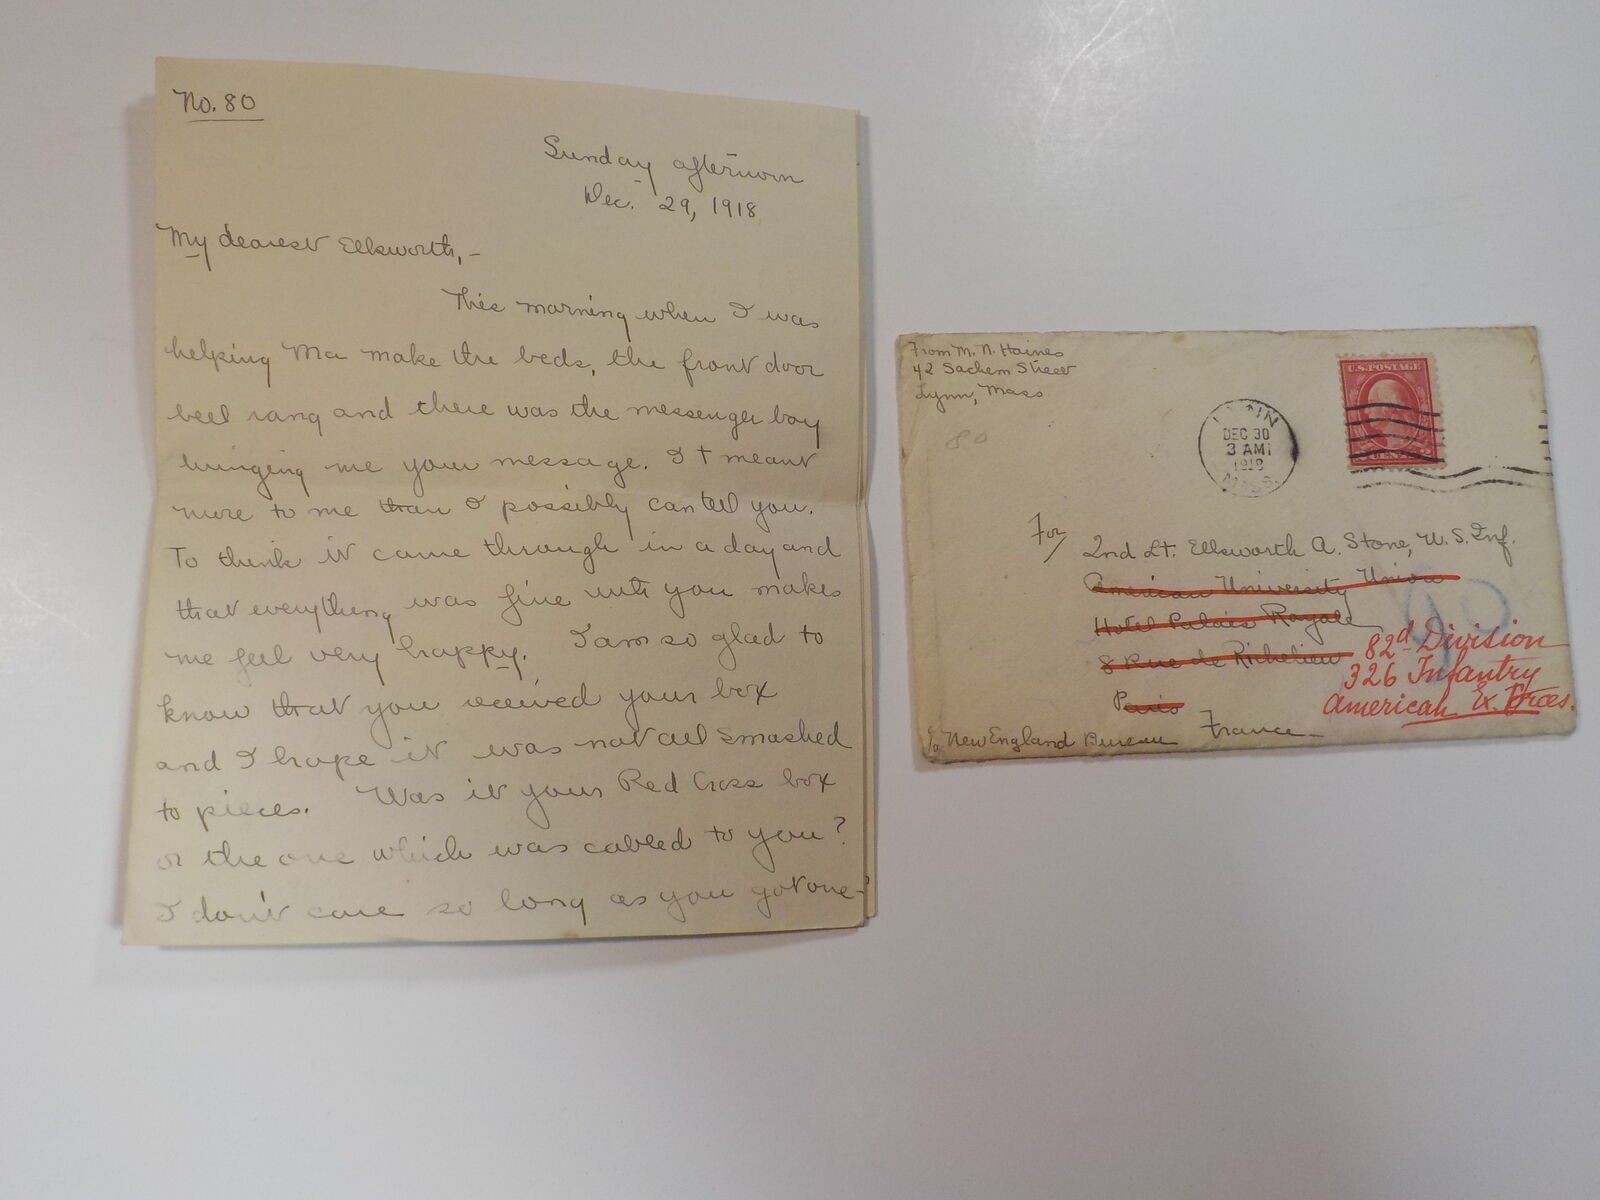 No. 80
Sunday afternoon
Dec. 29, 1918
My dearest Ellsworth, -
This morning when I was
helping Ma make the beds, the front door
bell rang and there was the messenger boy
bringing me your message. It meant
more to me than I possibly can tell you.
To think it came through in a day and
that everything was fine with you makes
me feel very happy. I am so glad to
know that you received your box
and I hope it was not all smashed
to pieces. Was it your Red Cross box
or the one which was cabled to you?
I don't care so long as you got one -
From M. N. Haines
42 Sachem Street
Lynn, Mass.
80
LYNN
DEC 30
3 AM
1918
MASS.
U.S. POSTAGE
2 CENTS 2
For
2nd Lt. Ellsworth A. Stone, U.S. Inf.
American University Union
Hotel Palais Royale
8 Rue de Richelieu
Paris
82d Division
326 Infantry
American Ex. Forces.
c/o New England Bureau France -